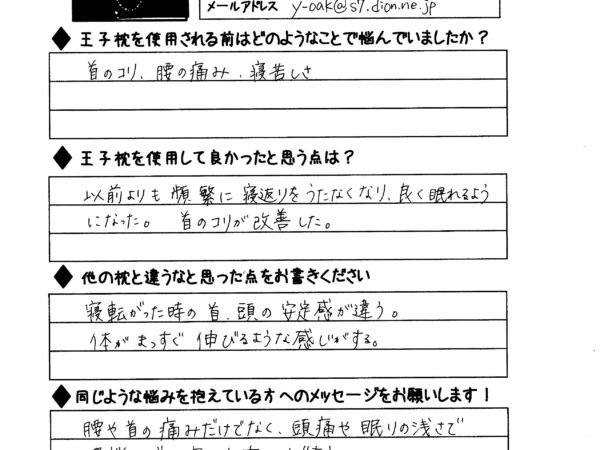 メールアドレス y-oak@s7.dion.ne.jp
◆王子枕を使用される前はどのようなことで悩んでいましたか？
首のコリ、腰の痛み、寝苦しさ
◆王子枕を使用して良かったと思う点は？
以前よりも 頻繁に 寝返りをうたなくなり、良く眠れるよう
になった。 首のコリが改善した。
◆他の枕と違うなと思った点をお書きください
寝転がった時の首、頭の安定感が違う。
体がまっすぐ伸びるような感じがする。
◆同じような悩みを抱えている方へのメッセージをお願いします！
腰や首の痛みだけでなく、頭痛や眠りの浅さで